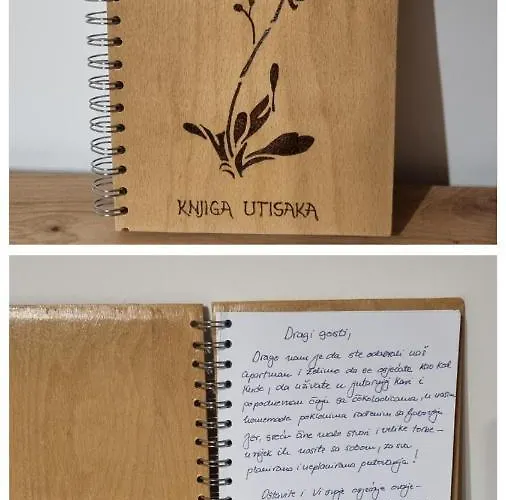 KNJIGA UTISAKA
Dragi gosti,
Drago nam je da ste odabrali naš
apartman i želimo da se osjećate kao kod
kuće, da uživate u jutarnjoj kavi i
popodnevnom čaju sa čokoladicama, u našim
homemade poklonima rađenim sa ljubavlju
Jer, sreću čine male stvari i velike torbe –
uvijek ih nosite sa sobom, za sva
planirana i neplanirana putovanja!
Ostavite i Vi svoje osjećaje ovdje –